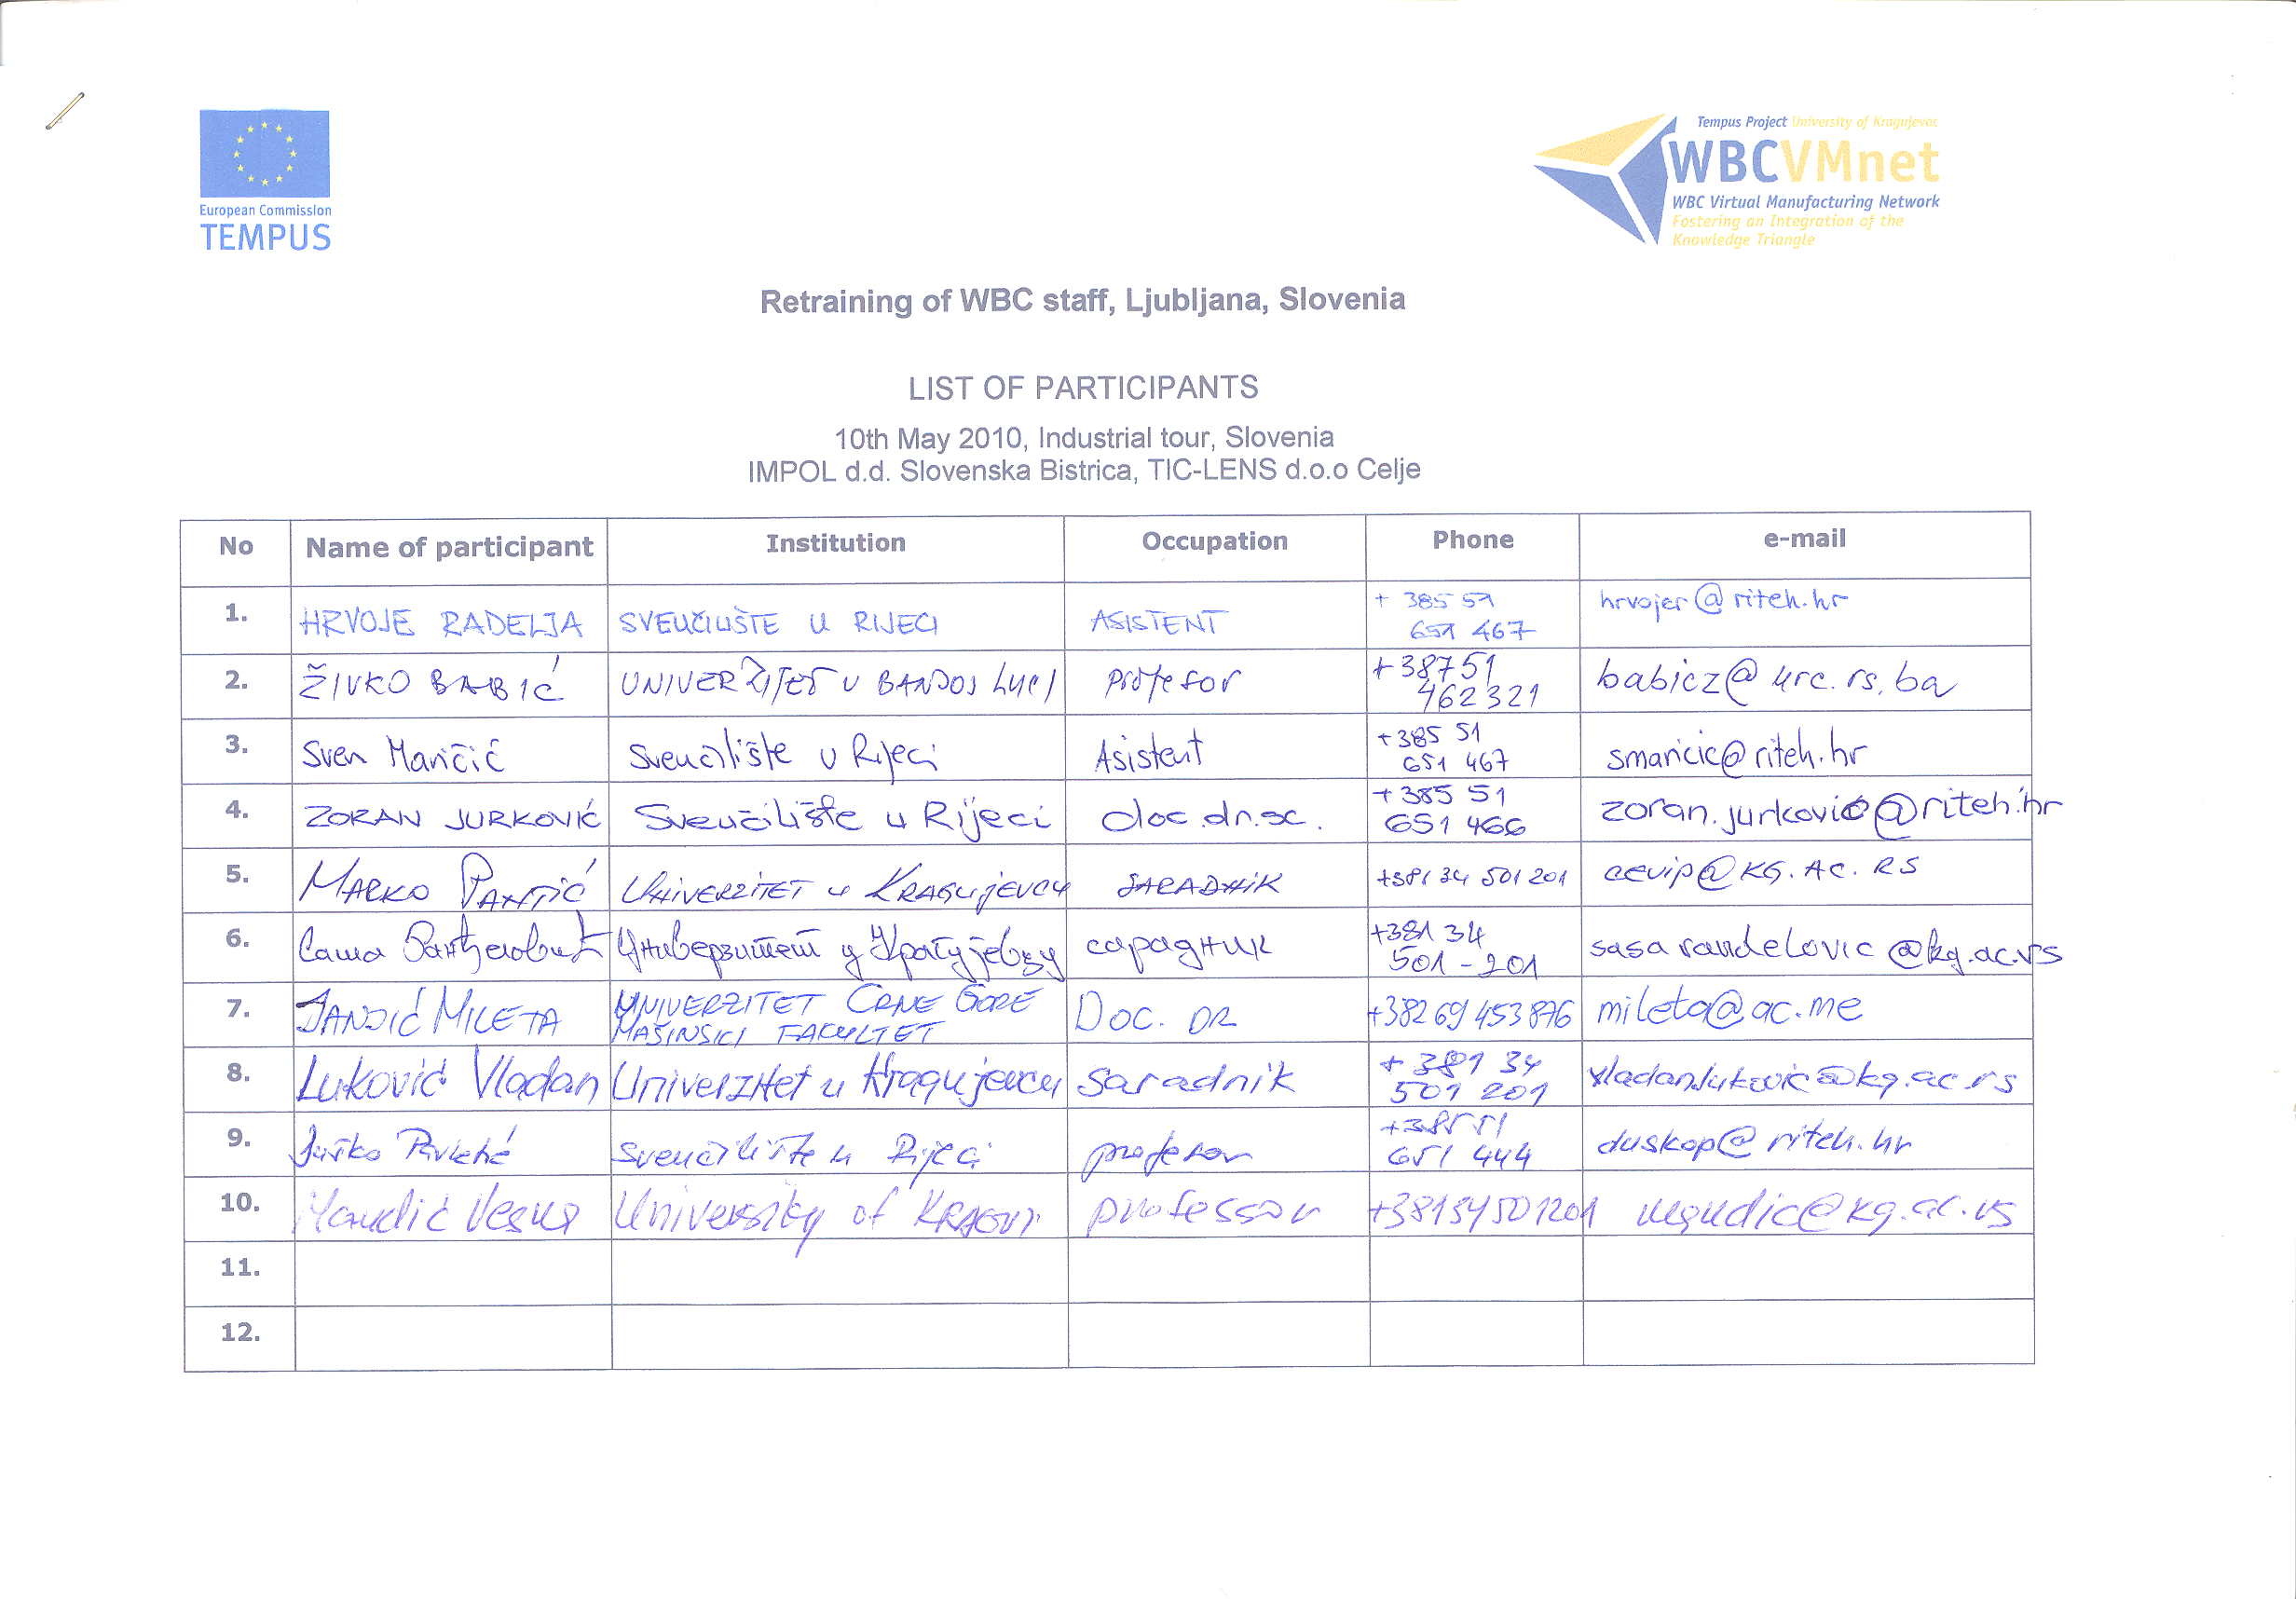 European Commission
TEMPUS
Tempus Project University of Kragujevac
WBCVMnet
WBC Virtual Manufacturing Network
Fostering an Integration of the
Knowledge Triangle
Retraining of WBC staff, Ljubljana, Slovenia
LIST OF PARTICIPANTS
10th May 2010, Industrial tour, Slovenia
IMPOL d.d. Slovenska Bistrica, TIC-LENS d.o.o Celje
No Name of participant Institution Occupation Phone e-mail
1. HRVOJE RADELJA SVEUČILIŠTE U RIJECI ASISTENT + 385 51 651 467 hrvojer@riteh.hr
2. ŽIVKO BABIĆ UNIVERZITET U BANJOJ LUCI profesor +387 51 462 321 babicz@urc.rs.ba
3. Sven Maričić Sveučilište u Rijeci Asistent +385 51 651 467 smaricic@riteh.hr
4. ZORAN JURKOVIĆ Sveučilište u Rijeci doc.dr.sc. +385 51 651 466 zoran.jurkovic@riteh.hr
5. MARKO PANTIĆ UNIVERZITET u KRAGUJEVCU SARADNIK +381 34 501 201 cevip@KG.AC.RS
6. Саша Ранђеловић Универзитет у Крагујевцу сарадник +381 34 501-201 sasa randelovic@kg.ac.rs
7. JANJIĆ MILETA UNIVERZITET CRNE GORE MAŠINSKI FAKULTET DOC. DR +382 69 453 876 mileta@ac.me
8. Luković Vladan Univerzitet u Kragujevcu saradnik + 381 34 501 201 vladanlukovic@kg.ac.rs
9. Duško Pavletić Sveučilište u Rijeci profesor +385 51 651 444 duskop@riteh.hr
10. Mandić Vesna University of KRAGUJ. professor +381 34 501 201 @kg.ac.rs
11.
12.